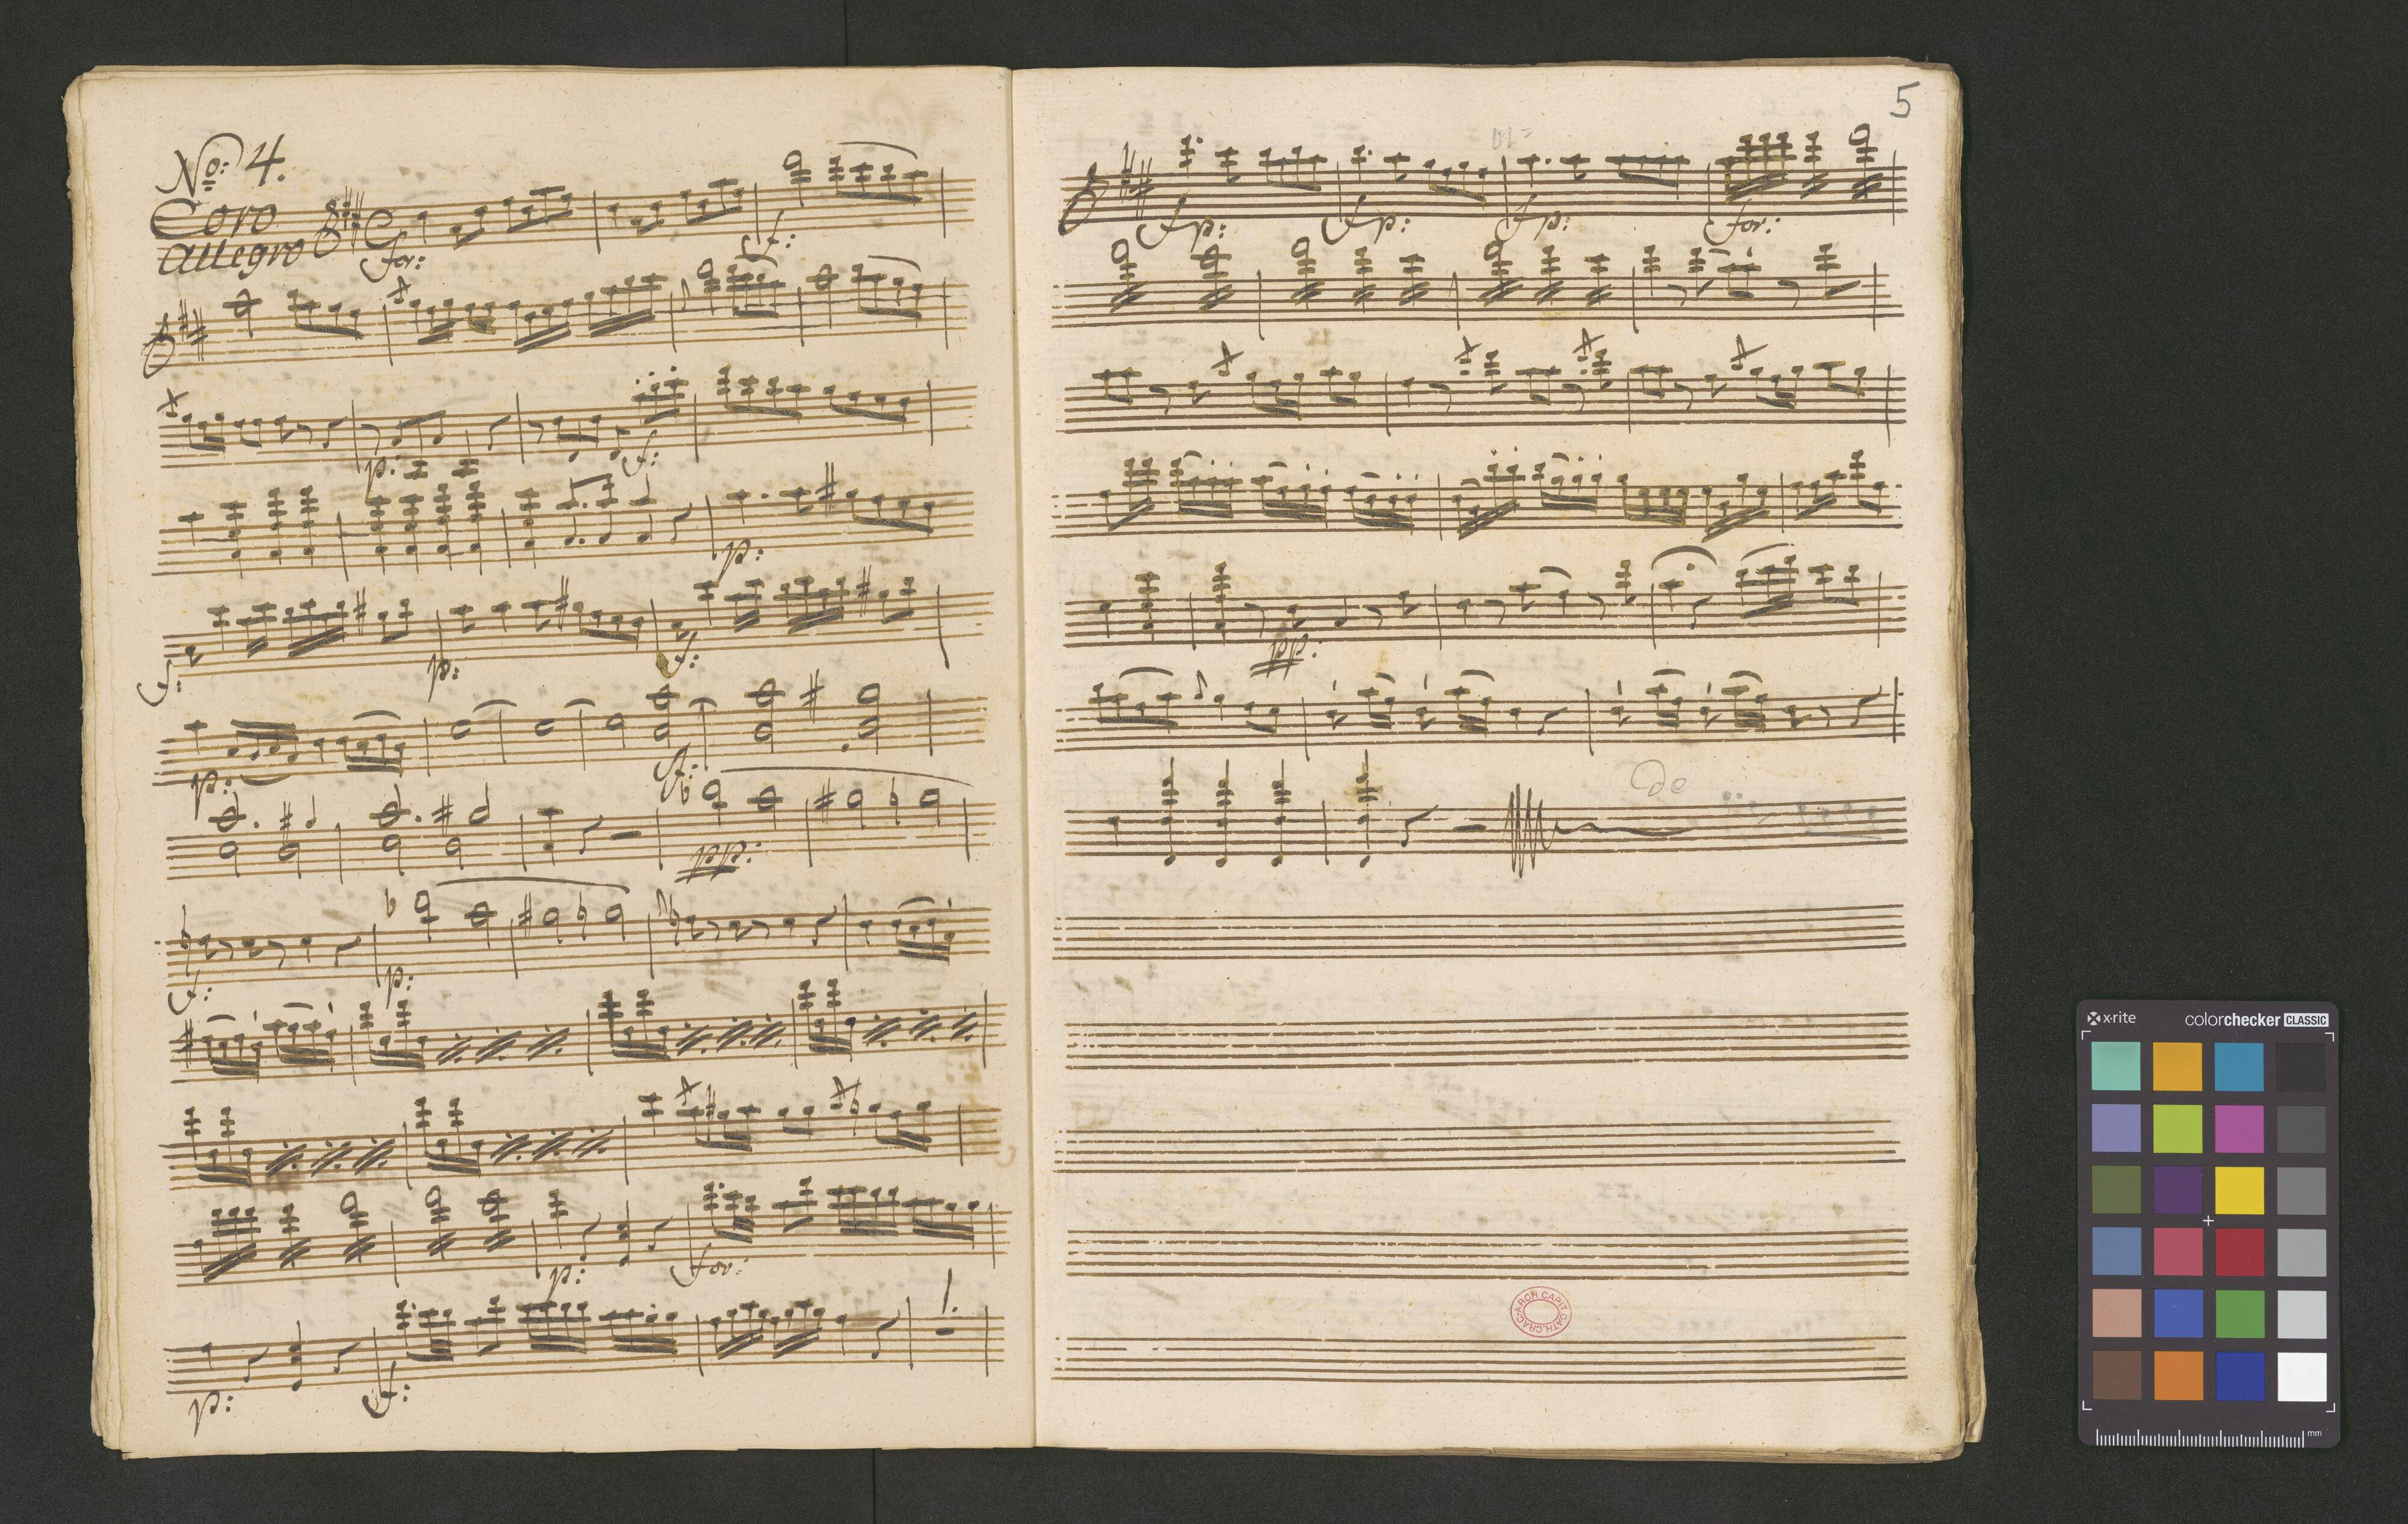 No: 4.
Coro
Allegro
for:
f:
p: f:
p:
f: p: f:
p: f:
pp:
f: p:
p: for:
p: f: 1.
5
fp: fp: fp: for:
pp:
Do
ARCH.CAPIT.CATH.CRAC
x·rite colorchecker CLASSIC
mm